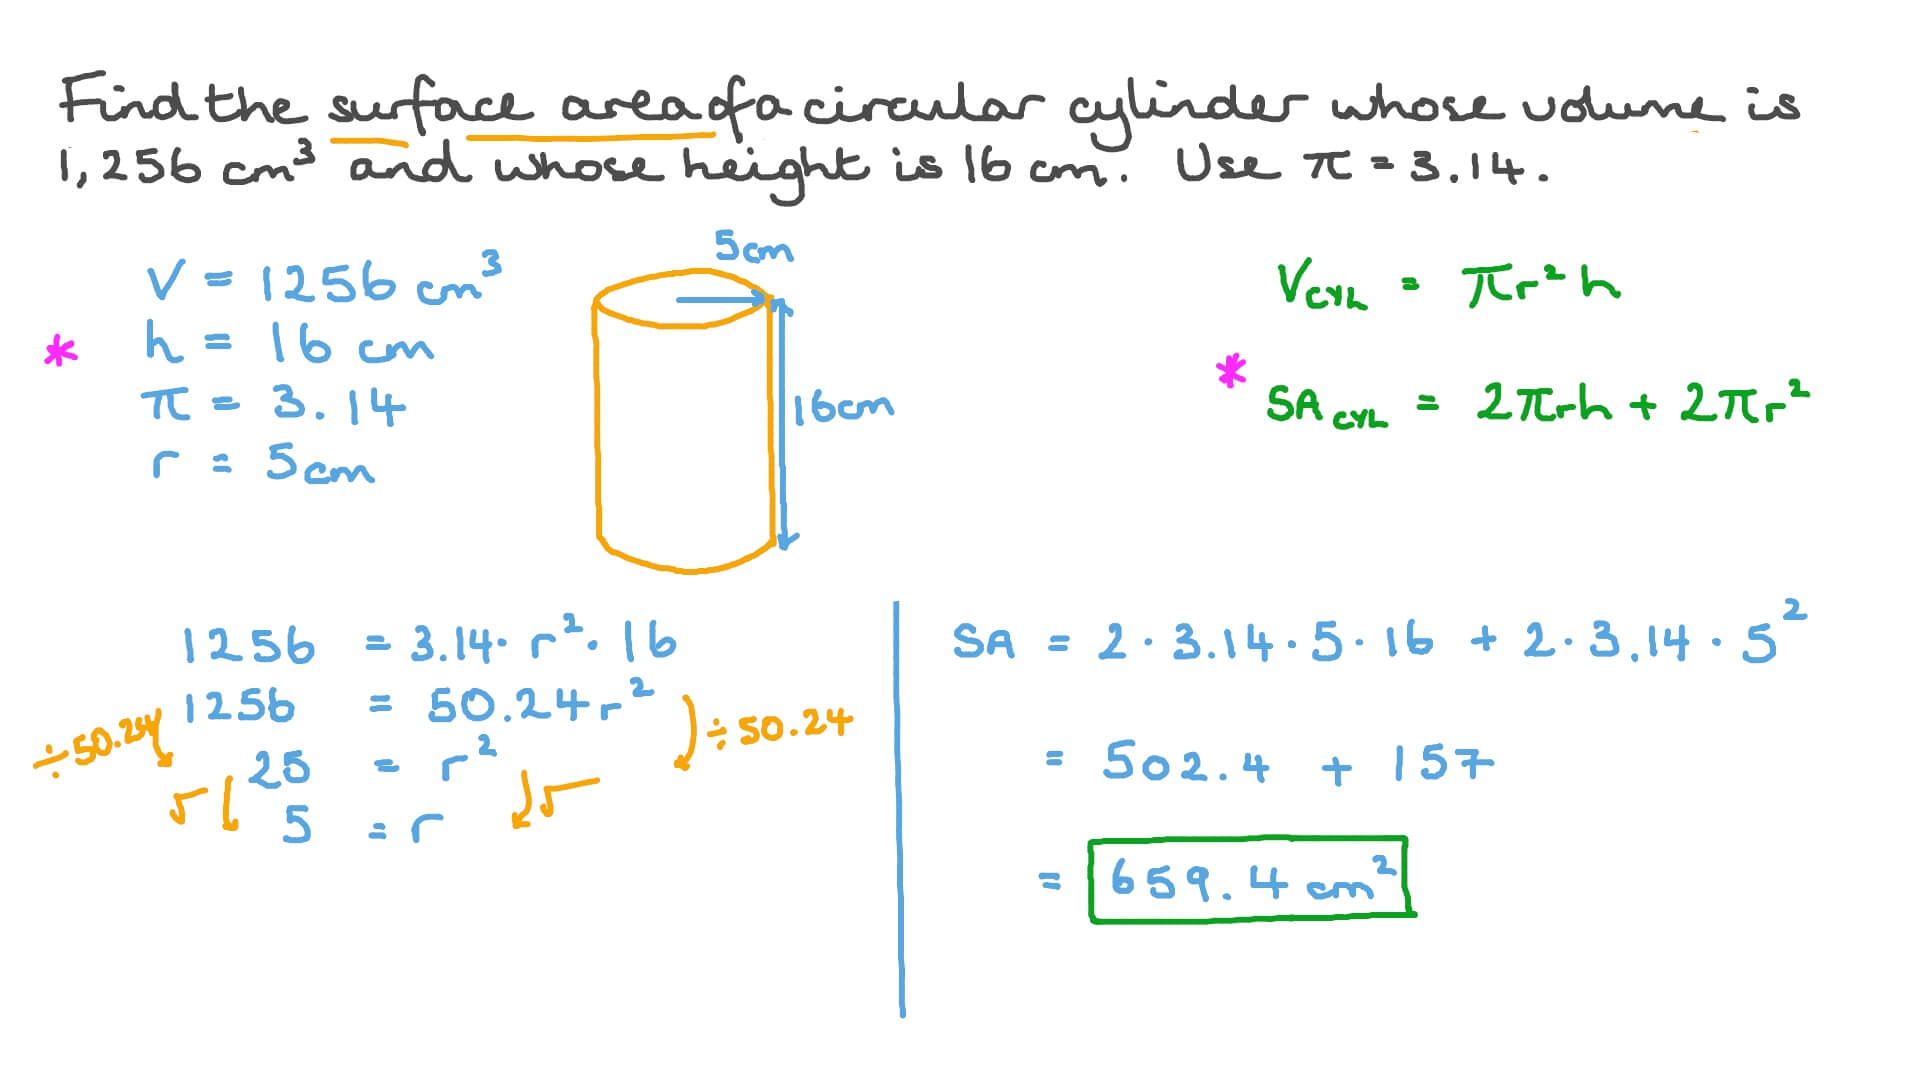 Find the surface area of a circular cylinder whose volume is
1,256 cm³ and whose height is 16 cm. Use π = 3.14.
V = 1256 cm³
* h = 16 cm
π = 3.14
r = 5cm
5cm
16cm
V CYL = πr²h
* SA CYL = 2πrh + 2πr²
1256 = 3.14 · r² · 16
1256 = 50.24r²
÷50.24 ÷50.24
25 = r²
√ √
5 = r
SA = 2 · 3.14 · 5 · 16 + 2 · 3.14 · 5²
= 502.4 + 157
= 659.4 cm²